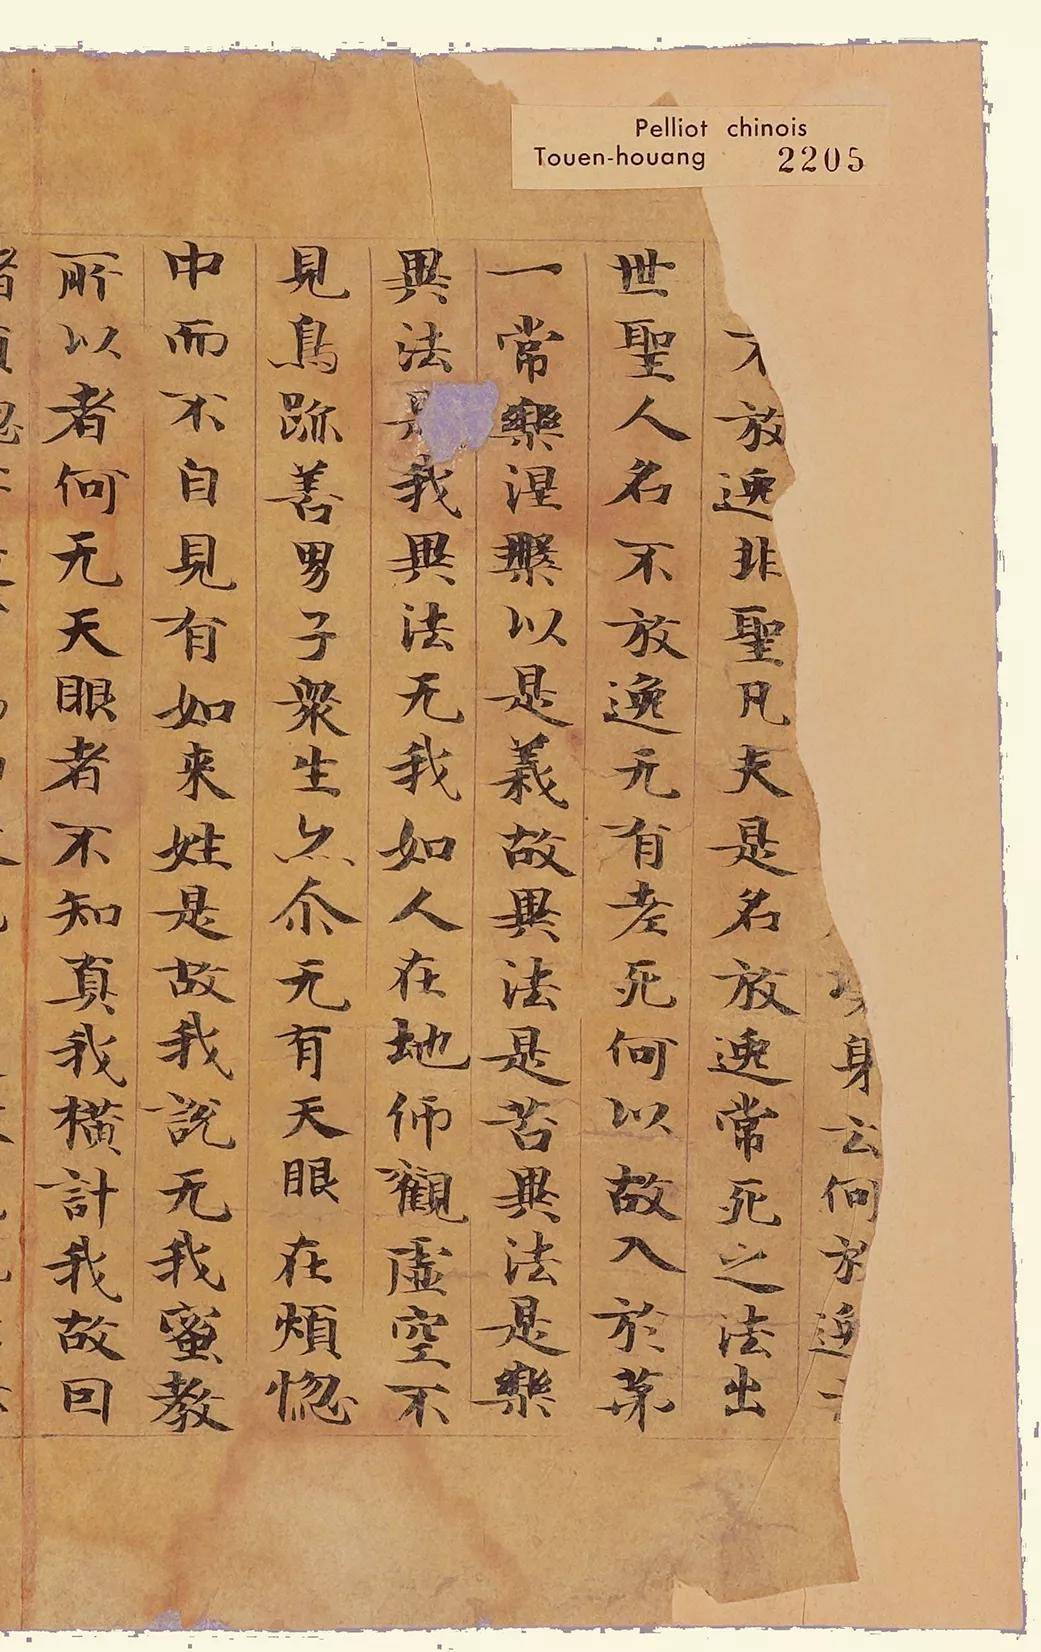 Pelliot chinois
Touen-houang 2205
身云何放逸
不放逸非聖凡夫是名放逸常死之法出
世聖人名不放逸无有老死何以故入於苐
一常樂涅槃以是義故異法是苦異法是樂
異法我異法无我如人在地仰觀虛空不
見鳥跡善男子衆生亦尒无有天眼在煩惚
中而不自見有如来姓是故我說无我蜜教
所以者何无天眼者不知真我橫計我故回